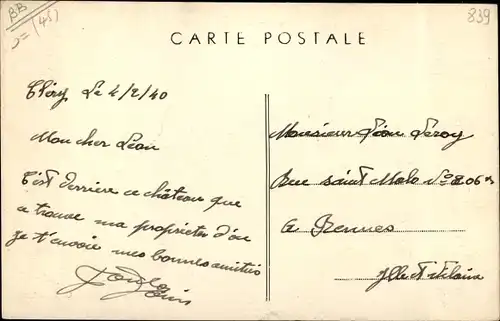 BB
(45)
839
CARTE POSTALE
Cléry Le 4/2/40
Mon cher Léon
C'est derriere ce château que
ce trouve ma propriété d'ou
je t'envoie mes bonnes amitiés
Monsieur Léon Leroy
Rue saint Malo N°
a Rennes
Ille et Vilaine